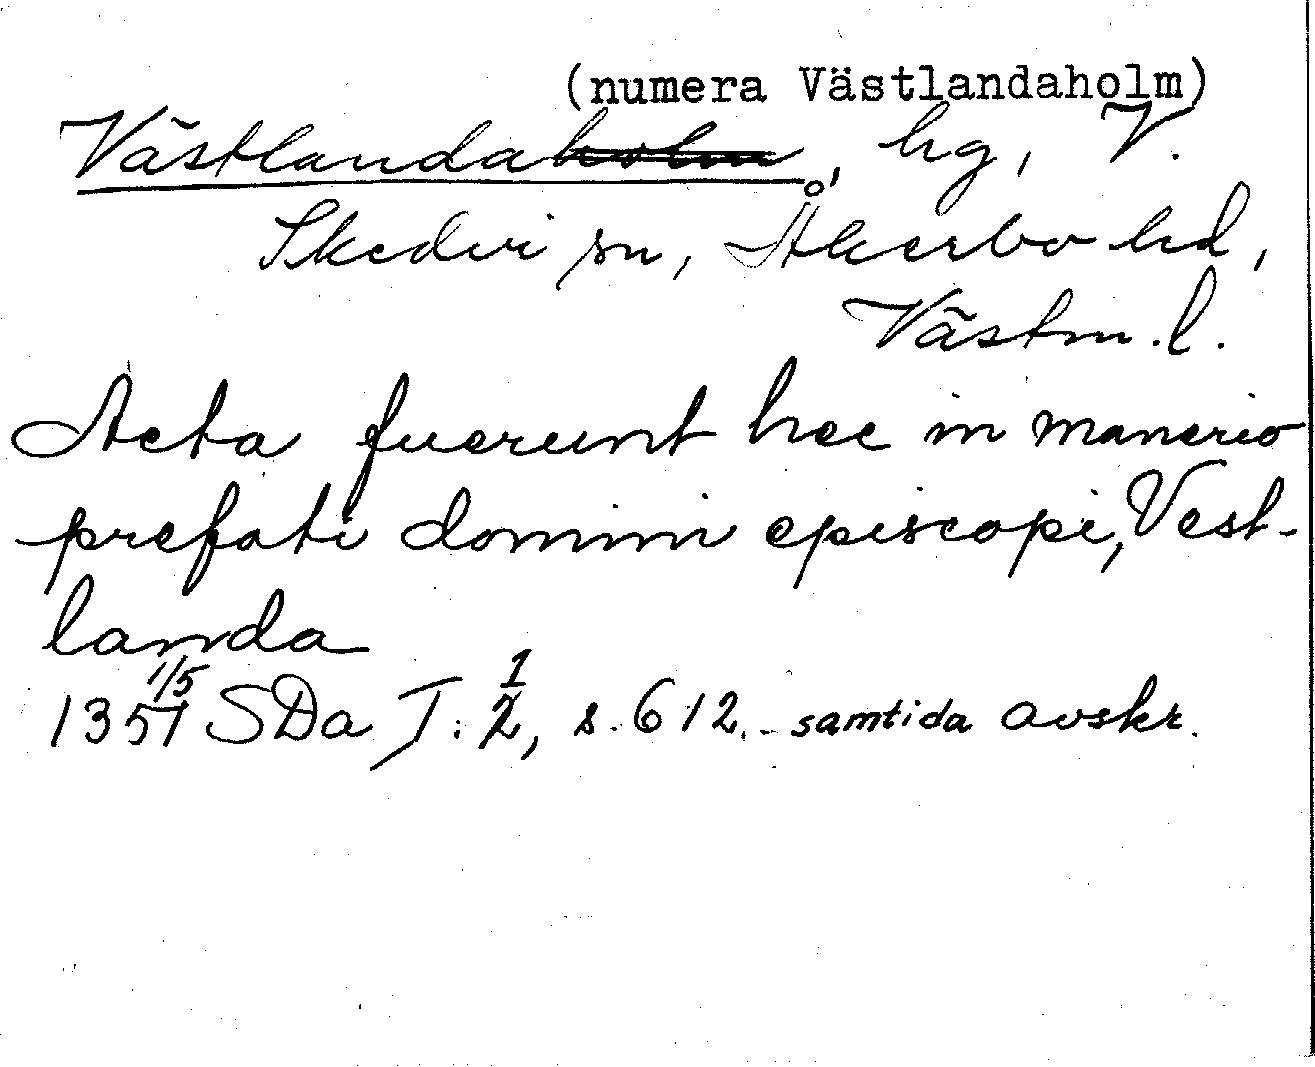 (numera Västlandaholm)
Västlandaholm, hg, V.
Skedvi sn, Åkerbo hd,
Västm. l.
Acta fuerunt hec in manerio
prefati domini episcopi, Vest-
landa
1357 1/5 SDa I: 1/2, s. 612. - samtida avskr.